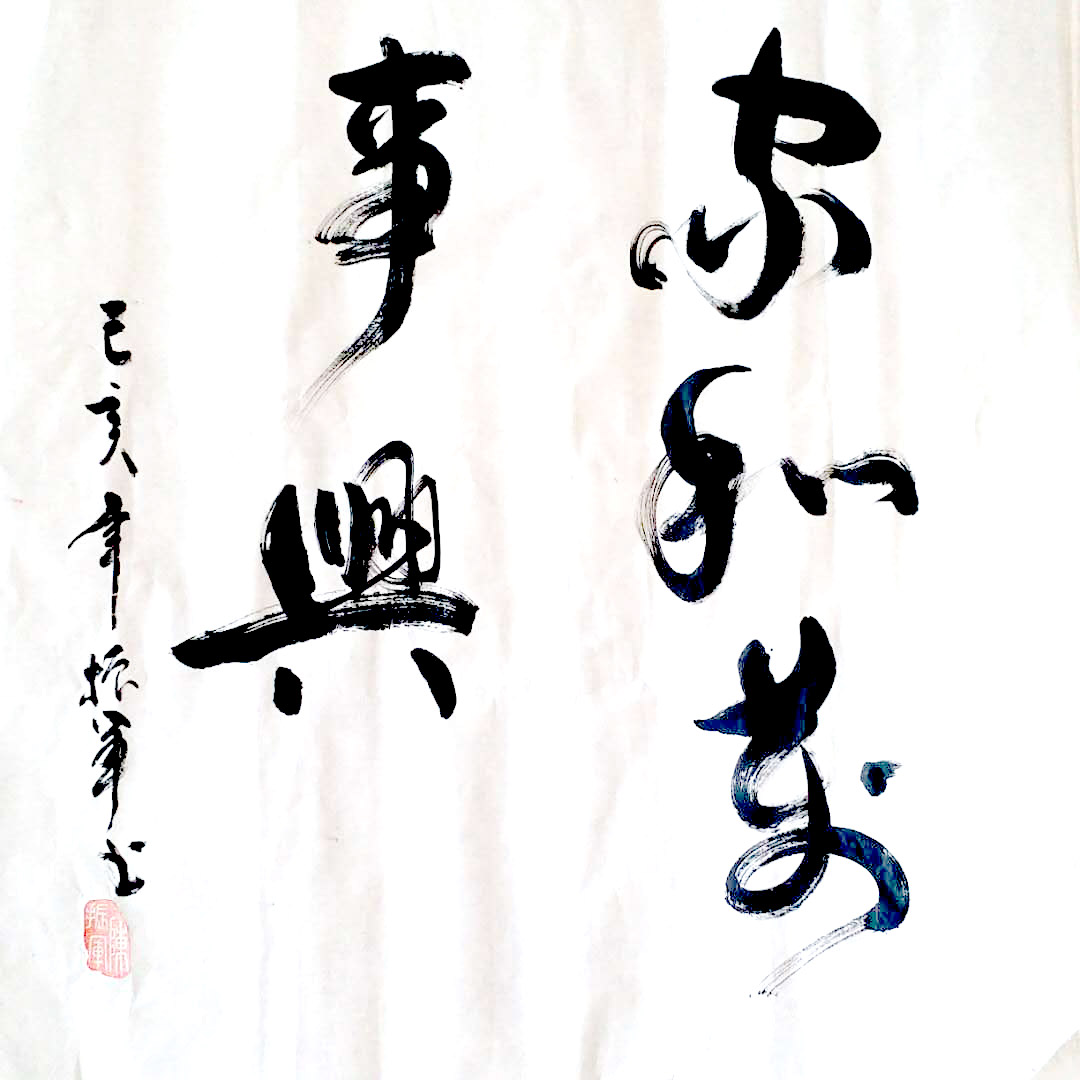 家和萬
事興
己亥年振軍书
陳振軍